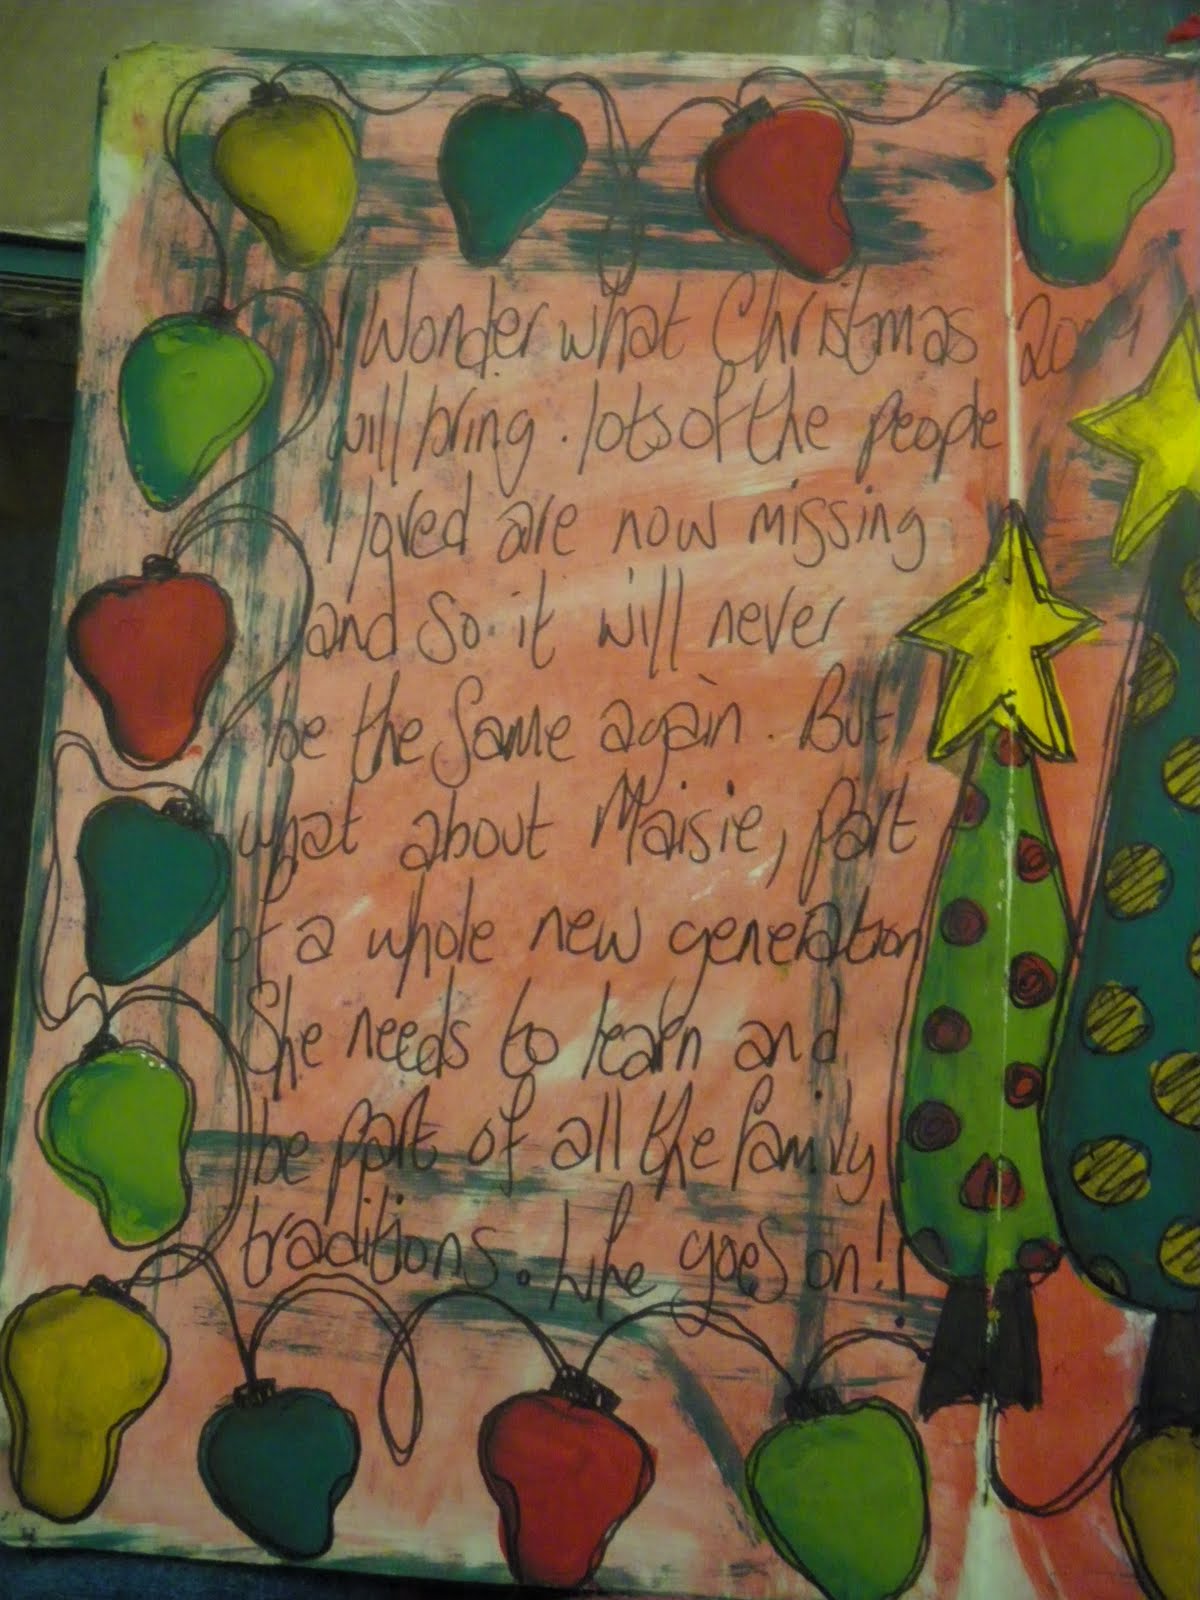 I Wonder what Christmas
will bring. lots of the people
I loved are now missing
and so it will never
be the same again. But
what about Maisie, part
of a whole new generation
She needs to learn and
be part of all the family
traditions. Life goes on!!